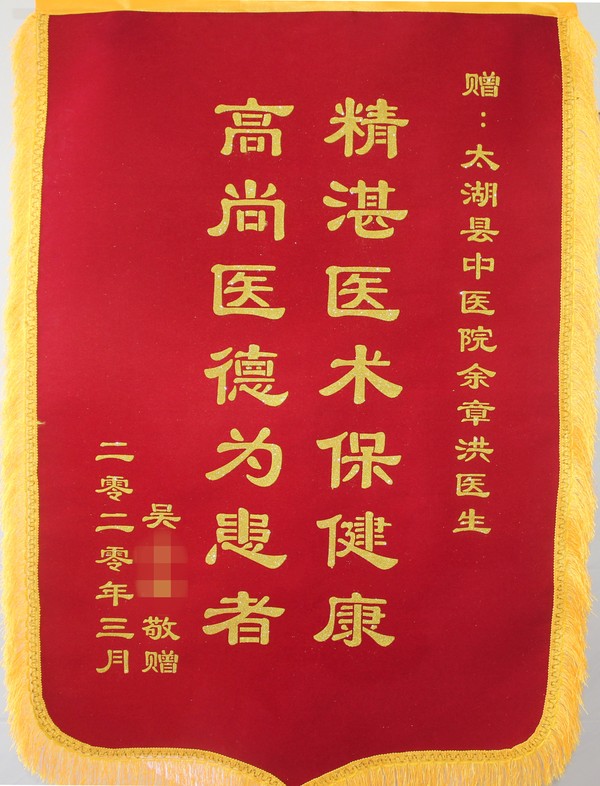 赠：太湖县中医院余章洪医生
精湛医术保健康
高尚医德为患者
吴 敬赠
二零二零年三月